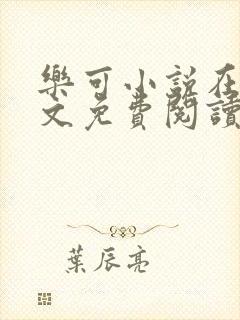 樂可小說在
文免費閱讀
葉辰亮